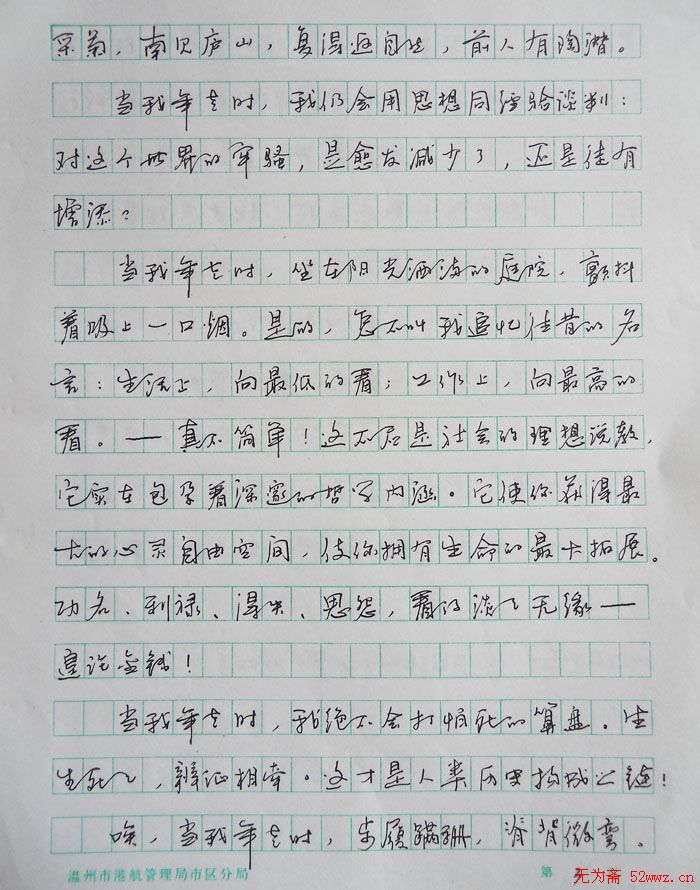 采菊，南见庐山，复得返自然，前人有陶潜。
当我年老时，我仍会用思想同经验谈判：
对这个世界的牢骚，是愈发减少了，还是徒有
增添？
当我年老时，坐在阳光洒满的庭院，颤抖
着吸上一口烟。是的，怎不叫我追忆往昔的名
言：生活上，向最低的看；工作上，向最高的
看。——真不简单！这不啻是社会的理想说教，
它实在包孕着深邃的哲学内涵。它使你获得最
大的心灵自由空间，使你拥有生命的最大拓展。
功名、利禄、得失、恩怨，看得淡之无缘——
遑论金钱！
当我年老时，我绝不会打惧死的算盘。生
生死死，辩证相牵。这才是人类历史构成之链！
唉，当我年老时，步履蹒跚，脊背微弯。
温州市港航管理局市区分局 第
无为斋 52wwz.cn